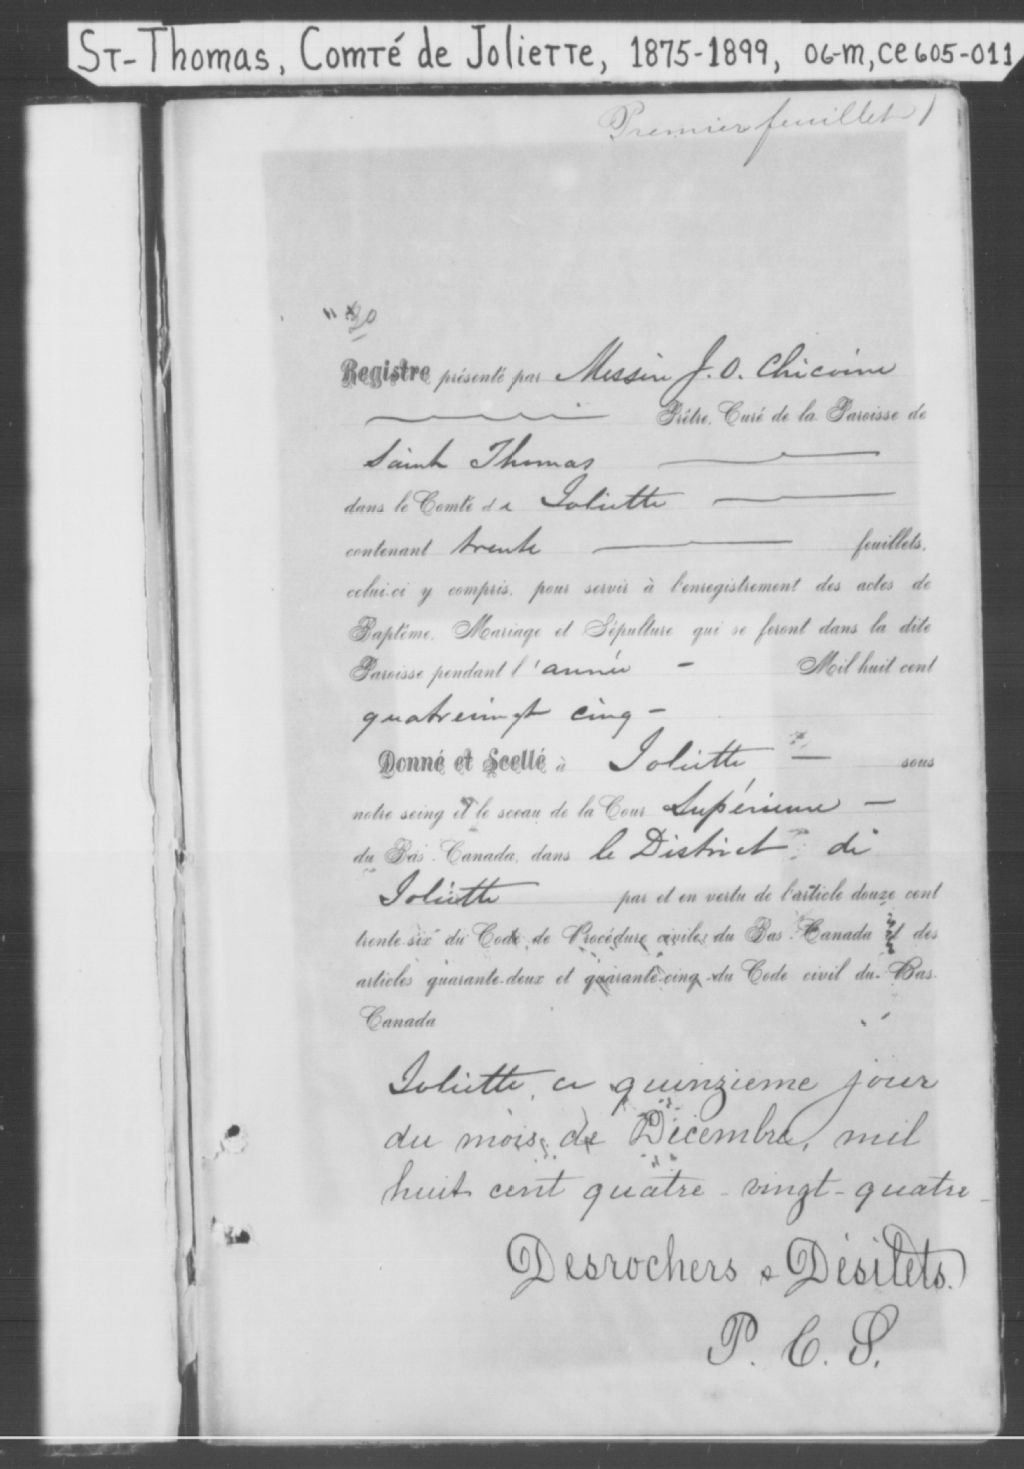 St-Thomas, Comté de Joliette, 1875-1899, 06-M, CE605-011
Premier feuillet
Registre présenté par Messire J. O. Chicoine
Prêtre, Curé de la Paroisse de
Saint Thomas
dans le Comté de Joliette
contenant trente feuillets,
celui-ci y compris, pour servir à l'enregistrement des actes de
Baptême, Mariage et Sépulture qui se feront dans la dite
Paroisse pendant l'année - Mil huit cent
quatrevingt cinq -
Donné et Scellé à Joliette — sous
notre seing et le sceau de la Cour Supérieure —
du Bas-Canada, dans le District de
Joliette par et en vertu de l'article douze cent
trente-six du Code de Procédure civile du Bas-Canada et des
articles quarante-deux et quarante-cinq du Code civil du Bas-
Canada
Joliette, ce quinzieme jour
du mois de Décembre, mil
huit cent quatre-vingt-quatre-
Desrochers & Désilets.
P. C. S.